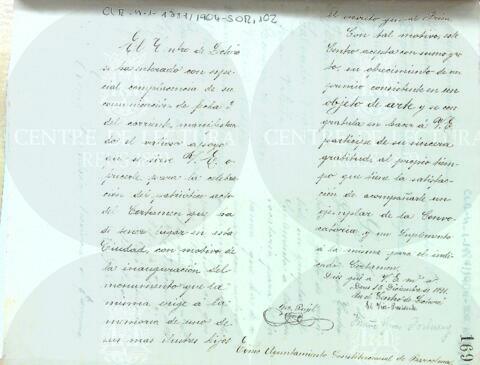 CLR-4-1-1311/1904-SOR,102
El Centro de Lectura
se ha enterado con espe-
cial complacencia de su
comunicación de fecha 2
del corriente, manifestan-
do el valioso apoyo
que se sirve V. E. o-
frecerle para la celebra-
ción del patriótico acto
del Certamen que ha
de tener lugar en esta
Ciudad, con motivo de
la inauguración del
monumento que la
misma erige a la
memoria de uno de
sus mas ilustres hijos
el invicto general Prim.
Con tal motivo, este
Centro acepta con sumo gra-
to, su ofrecimiento de un
premio consistente en un
objeto de arte, y se con-
gratula en hacer á V. E.
partícipe de su sincera
gratitud, al propio tiem-
po que tiene la satisfac-
ción de acompañarle un
ejemplar de la Convo-
catoria y un Suplemento
á la misma para el indi-
cado Certamen.
Dios gue á V. E. ms as
Reus 12 Diciembre de 1891.
Por el Centro de Lectura
El Vice-Presidente
Excmo Ayuntamiento Constitucional de Barcelona
CENTRE DE LECTURA
169